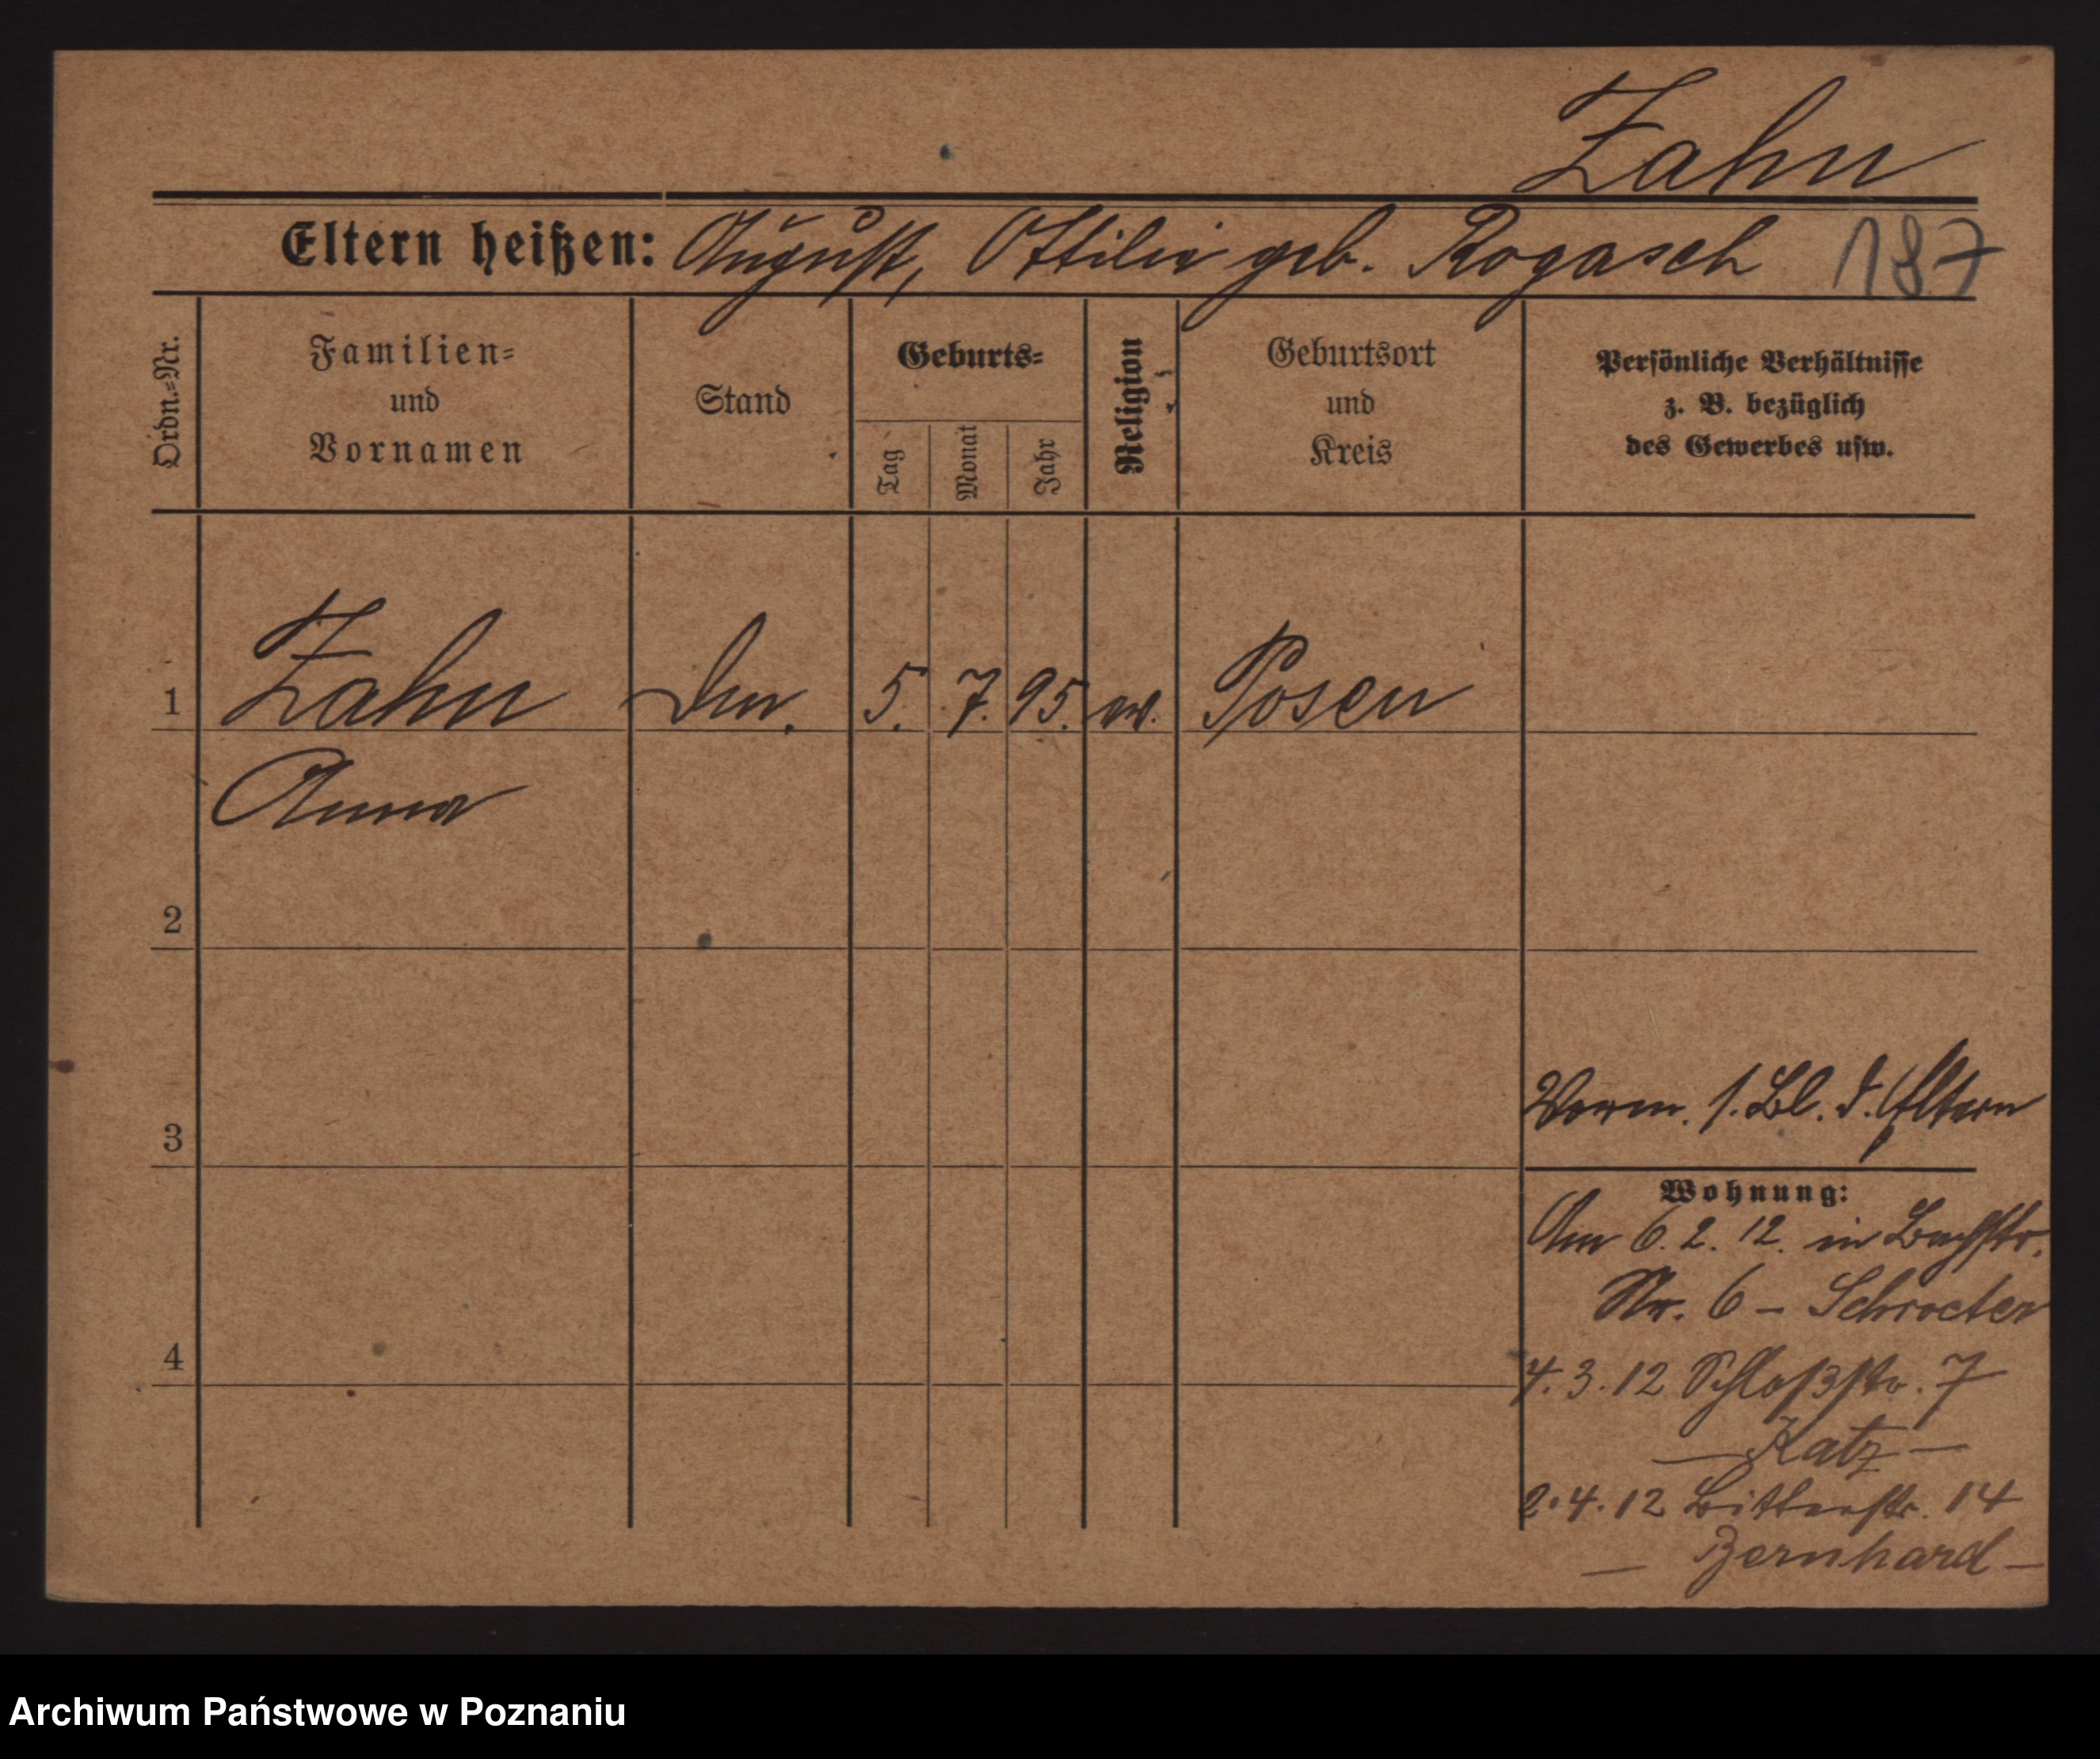 Zahn
Eltern heißen: August, Ottilie geb. Rogasch 187
Ordn.=Nr.
Familien=
und
Vornamen
Stand
Geburts=
Tag
Monat
Jahr
Religion
Geburtsort
und
Kreis
Persönliche Verhältnisse
z. B. bezüglich
des Gewerbes usw.
1 Zahn 5. 7. 95. ev. Posen
Anna
2
3
Vorm. s. Bl. d. Eltern
Wohnung:
Am 6. 2. 12. in Bachstr.
Nr. 6 – Schroeter
4
4. 3. 12 Schloßstr. 7
– Katz –
2. 4. 12 Bitterstr. 14
– Bernhard –
Archiwum Państwowe w Poznaniu